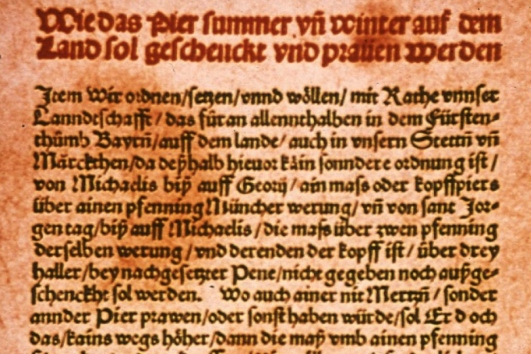 Wie das Pier summer vñ winter auf dem
Land sol geschenckt vnd praüen werden
Item Wir ordnen/setzen/vnnd wöllen/ mit Rathe vnnser
Lanndtschafft/ das füran allennthalben in dem Fürsten-
thümb Bayrñ/auff dem lande/ auch in vnsern Stettñ vñ
Märckthen/da deßhalb hieuor kain sonndere ordnung ist/
von Michaelis biß auff Georij/ ain mass oder kopffpiers
über ainen pfenning Müncher werung/ vñ von sant Jor-
gen tag/biß auff Michaelis/ die mass über zwen pfenning
derselben werung/ vnd derenden der kopff ist/ über drey
haller/bey nachgesetzter Pene/nicht gegeben noch außge-
schenckht sol werden. Wo auch ainer nit Mertzñ/ sonder
annder Pier prawen/oder sonst haben würde/sol Er doch
das/kains wegs höher/dann die maß vmb ainen pfenning